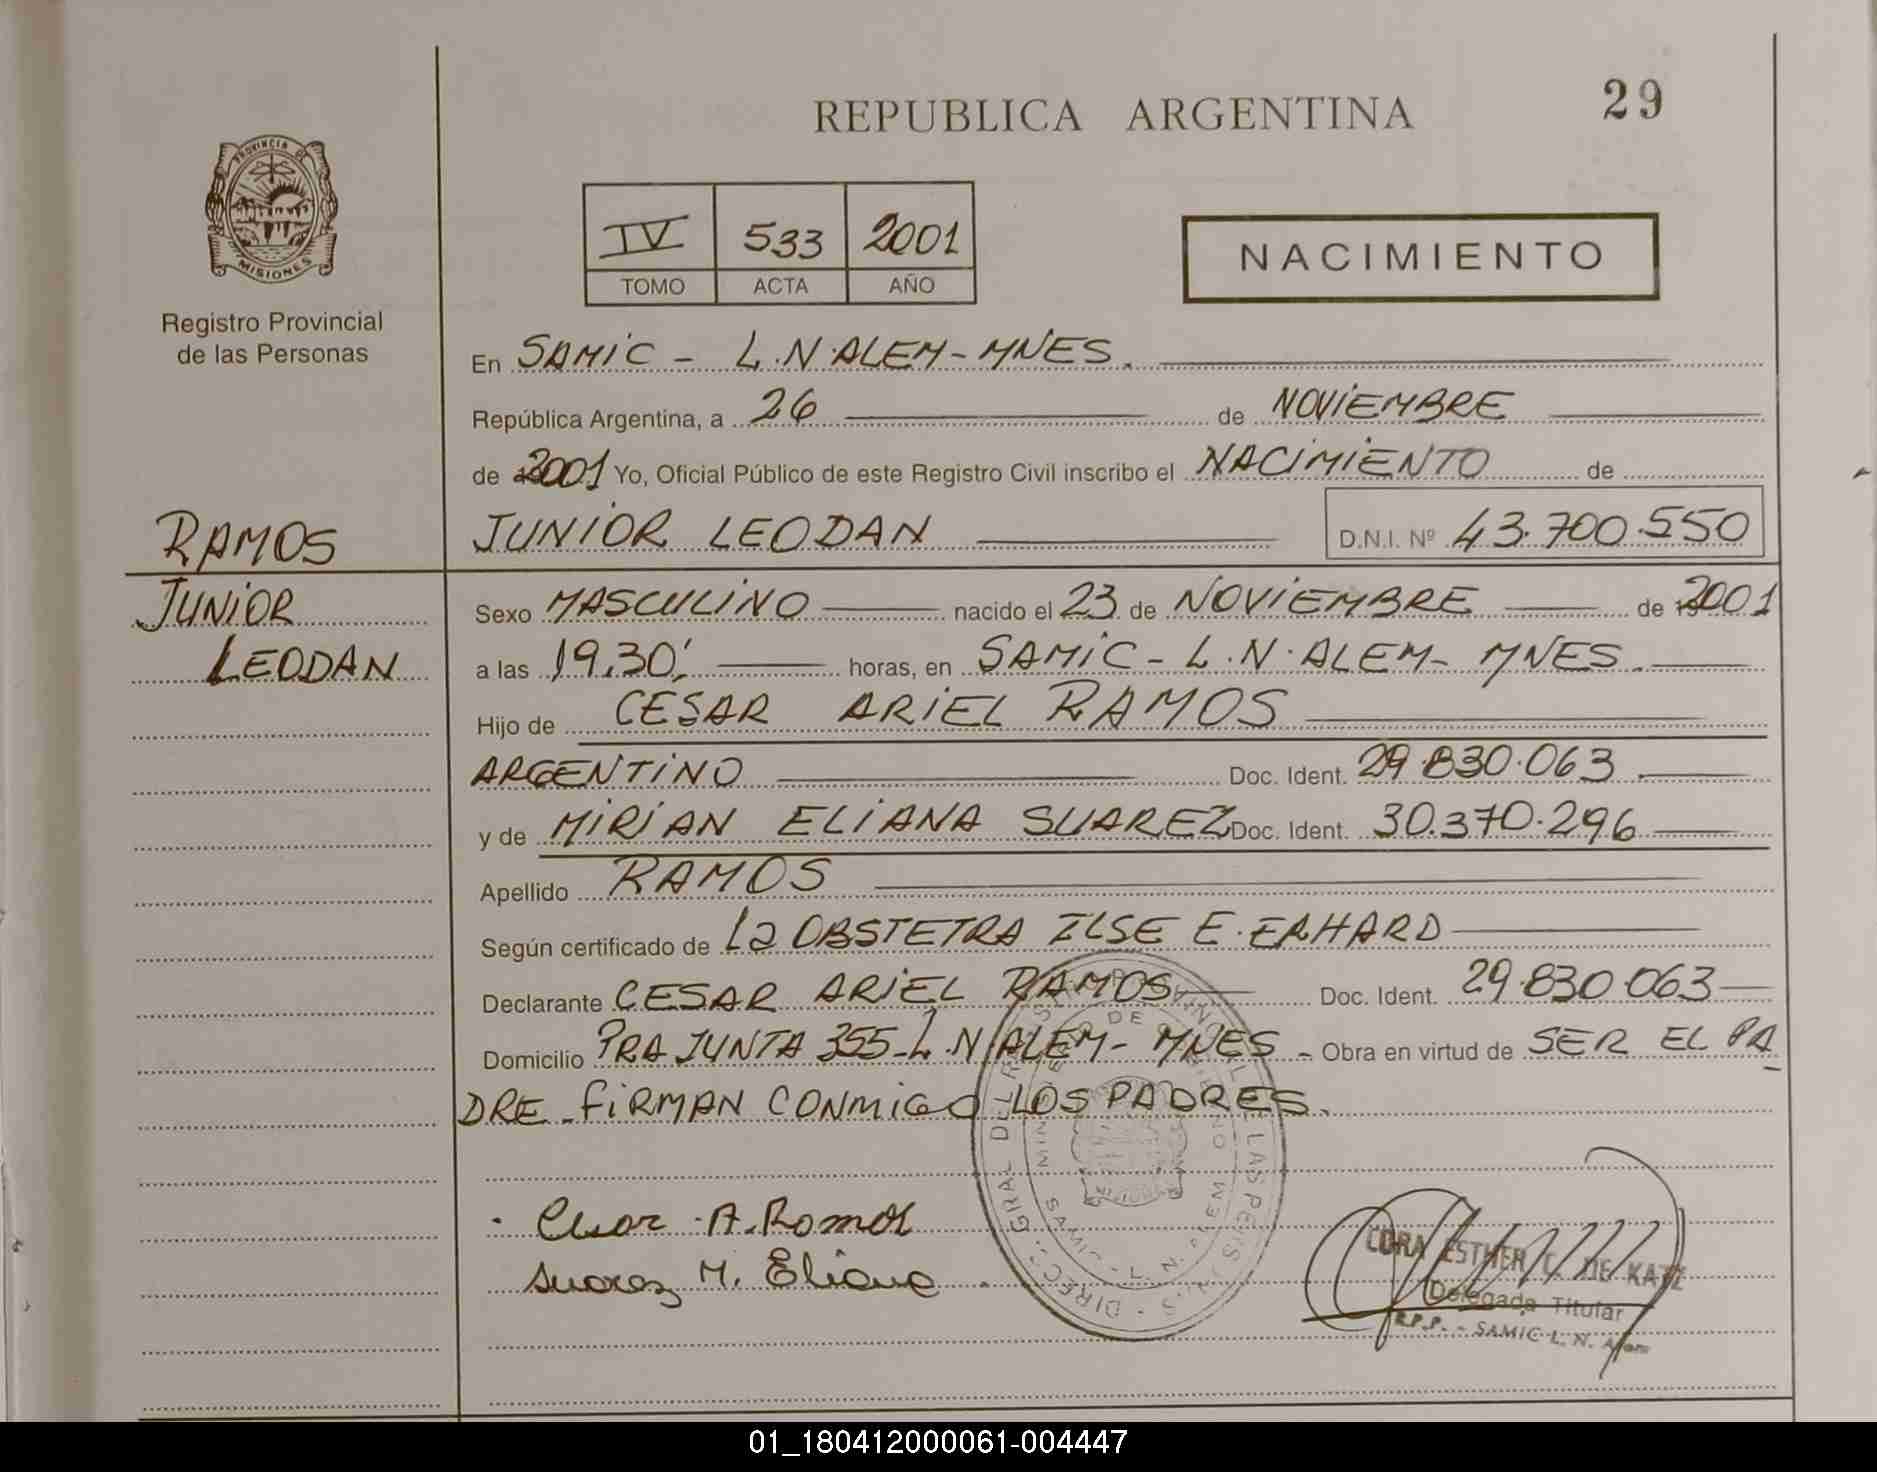 REPUBLICA ARGENTINA
29
PROVINCIA DE
MISIONES
Registro Provincial
de las Personas
IV 533 2001
TOMO ACTA AÑO
NACIMIENTO
En SAMIC - L.N. ALEM - MNES.
República Argentina, a 26 de NOVIEMBRE
de 2001 Yo, Oficial Público de este Registro Civil inscribo el NACIMIENTO de
JUNIOR LEODAN D.N.I. Nº 43.700.550
RAMOS
JUNIOR
LEODAN
Sexo MASCULINO nacido el 23 de NOVIEMBRE de 2001
a las 19.30' horas, en SAMIC - L.N. ALEM - MNES.
Hijo de CESAR ARIEL RAMOS
ARGENTINO Doc. Ident. 29.830.063
y de MIRIAN ELIANA SUAREZ Doc. Ident. 30.370.296
Apellido RAMOS
Según certificado de La OBSTETRA ILSE E. ERHARD
Declarante CESAR ARIEL RAMOS Doc. Ident. 29.830.063
Domicilio PRA JUNTA 355 - L.N. ALEM - MNES - Obra en virtud de SER EL PA
DRE - FIRMAN CONMIGO LOS PADRES.
Cesar A. Ramos
Suarez M. Eliana
CORA ESTHER C. DE KATZ
Delegada Titular
R.P.P. - SAMIC L. N. Alem
01_180412000061-004447